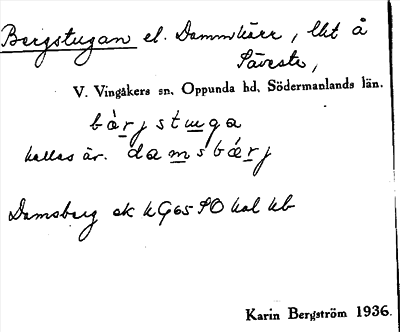 Bergstugan el. Dammkärr, lht å
Säveste,
V. Vingåkers sn. Oppunda hd. Södermanlands län.
bárjstuga
kallas är. damsbǽrj
Damsberg ek kG65 SO kal kb
Karin Bergström 1936.